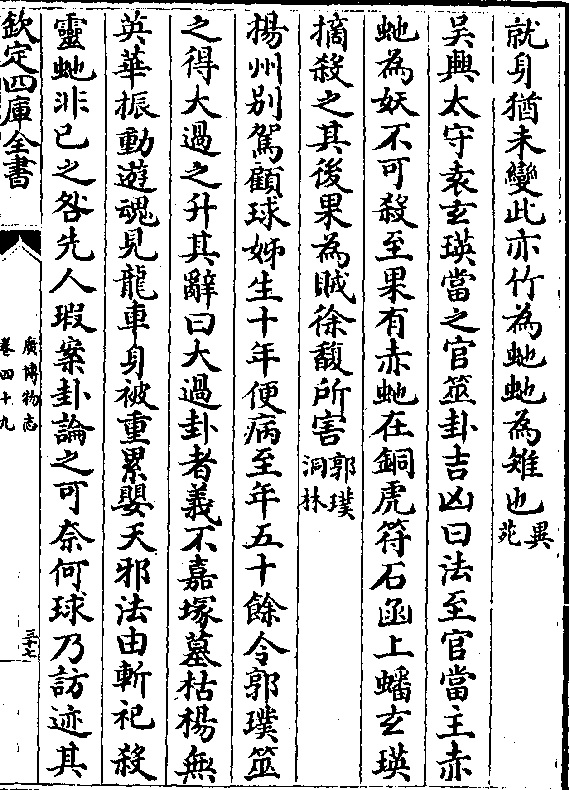 就身猶未變此亦竹為虵虵為雉也異苑
吳興太守袁玄瑛當之官筮卦吉凶曰法至官當主赤
虵為妖不可殺至果有赤虵在銅虎符石函上蟠玄瑛
摘殺之其後果為賊徐馥所害郭璞洞林
揚州别駕顧球姊生十年便病至年五十餘令郭璞筮
之得大過之升其辭曰大過卦者義不嘉塚墓枯楊無
英華振動遊魂見龍車身被重累嬰天邪法由斬祀殺
靈虵非已之咎先人瑕案卦論之可奈何球乃訪迹其
欽定四庫全書
廣博物志
卷四十九
三十七